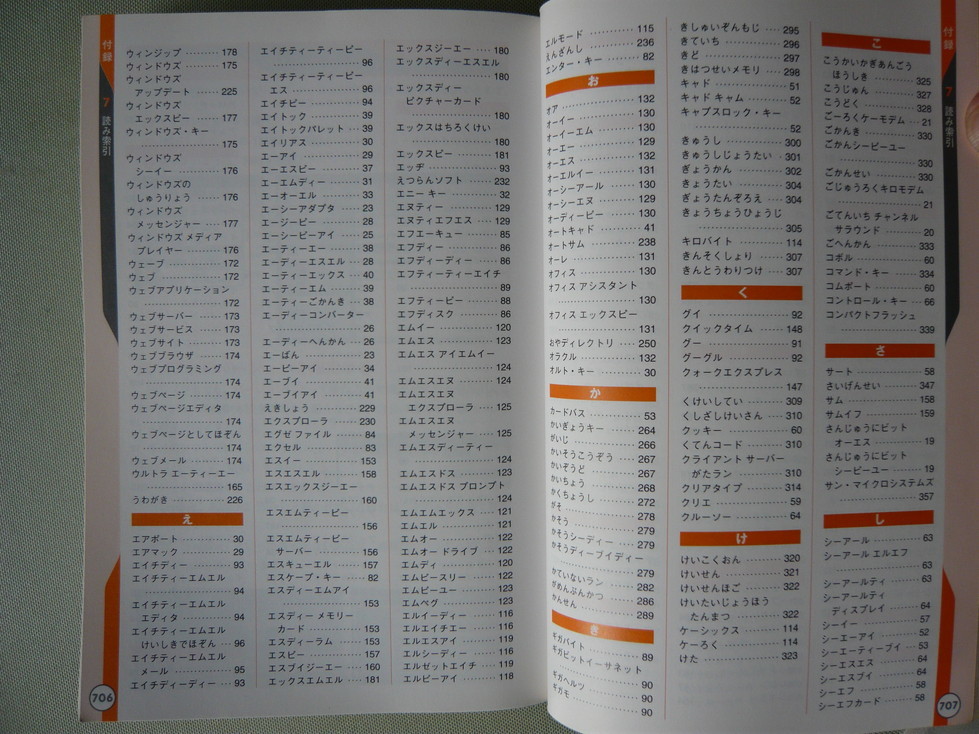 付録
7
読み索引
ウィンジップ ……… 178
ウィンドウズ ……… 175
ウィンドウズ
アップデート …… 225
ウィンドウズ
エックスピー …… 177
ウィンドウズ・キー
……………… 175
ウィンドウズ
シーイー ………… 176
ウィンドウズの
しゅうりょう …… 176
ウィンドウズ
メッセンジャー …… 177
ウィンドウズ メディア
プレイヤー ……… 176
ウェーブ …………… 172
ウェブ ……………… 172
ウェブアプリケーション
……………… 172
ウェブサーバー …… 173
ウェブサービス …… 173
ウェブサイト ……… 173
ウェブブラウザ …… 174
ウェブプログラミング
……………… 174
ウェブページ ……… 174
ウェブページエディタ
……………… 174
ウェブページとしてほぞん
……………… 174
ウェブメール ……… 174
ウルトラ エーティーエー
……………… 165
うわがき …………… 226
え
エアポート ………… 30
エアマック ………… 29
エイチディー ……… 93
エイチティーエムエル
……………… 94
エイチティーエムエル
エディタ ………… 94
エイチティーエムエル
けいしきでほぞん … 96
エイチティーエムエル
メール …………… 95
エイチディーディー … 93
706
エイチティーティーピー
……………… 96
エイチティーティーピー
エス ……………… 96
エイチピー ………… 94
エイトック ………… 39
エイトックパレット … 39
エイリアス ………… 30
エーアイ …………… 29
エーエスピー ……… 37
エーエムディー …… 31
エーオーエル ……… 33
エーシーアダプタ … 23
エージーピー ……… 28
エーシーピーアイ … 25
エーティーエー …… 38
エーディーエスエル … 28
エーティーエックス … 40
エーティーエム …… 39
エーティーごかんき … 38
エーディーコンバーター
……………… 26
エーディーへんかん … 26
エーばん …………… 23
エーピーアイ ……… 34
エーブイ …………… 41
エーブイアイ ……… 41
えきしょう ………… 229
エクスプローラ …… 230
エグゼ ファイル …… 84
エクセル …………… 83
エスイー …………… 153
エスエスエル ……… 158
エスエックスジーエー
……………… 160
エスエムティーピー
……………… 156
エスエムティーピー
サーバー ………… 156
エスキューエル …… 157
エスケープ・キー … 82
エスディーエムアイ
……………… 153
エスディー メモリー
カード …………… 153
エスディーラム …… 153
エスピー …………… 157
エスブイジーエー … 160
エックスエムエル … 181
エックスジーエー … 180
エックスディーエスエル
……………… 180
エックスディー
ピクチャーカード
……………… 180
エックスはちろくけい
……………… 180
エックスピー ……… 181
エッヂ ……………… 93
えつらんソフト …… 232
エニー キー ………… 32
エヌティー ………… 129
エヌティエフエス … 129
エフエーキュー …… 85
エフディー ………… 86
エフディーディー … 86
エフティーティーエイチ
……………… 89
エフティーピー …… 88
エフディスク ……… 86
エムイー …………… 120
エムエス …………… 123
エムエス アイエムイー
……………… 124
エムエスエヌ ……… 124
エムエスエヌ
エクスプローラ … 125
エムエスエヌ
メッセンジャー … 125
エムエスディーティー
……………… 124
エムエスドス ……… 123
エムエスドス プロンプト
……………… 124
エムエムエックス … 121
エムエル …………… 121
エムオー …………… 122
エムオー ドライブ … 122
エムディ …………… 120
エムピースリー …… 122
エムピーユー ……… 123
エムペグ …………… 123
エルイーディー …… 116
エルエイチエー …… 116
エルエスアイ ……… 119
エルシーディー …… 116
エルゼットエイチ … 119
エルピーアイ ……… 118
エルモード ………… 115
えんざんし ………… 236
エンター・キー …… 82
お
オア ………………… 132
オーイー …………… 130
オーイーエム ……… 130
オーエー …………… 129
オーエス …………… 132
オーエルイー ……… 131
オーシーアール …… 130
オーシーエヌ ……… 129
オーディーピー …… 130
オートキャド ……… 41
オートサム ………… 238
オーレ ……………… 131
オフィス …………… 130
オフィス アシスタント
……………… 130
オフィス エックスピー
……………… 131
おやディレクトリ … 250
オラクル …………… 132
オルト・キー ……… 30
か
カードバス ………… 53
かいぎょうキー …… 264
がいじ ……………… 266
かいそうこうぞう … 267
かいぞうど ………… 267
かいちょう ………… 268
かくちょうし ……… 272
がそ ………………… 278
かそう ……………… 279
かそうシーディー … 279
かそうディーブイディー
……………… 279
かていないラン …… 282
がめんぶんかつ …… 286
かんせん …………… 289
き
ギガバイト ………… 89
ギガビットイーサネット
……………… 90
ギガヘルツ ………… 90
ギガモ ……………… 90
きしゅいぞんもじ … 295
きていち …………… 296
きど ………………… 297
きはつせいメモリ … 298
キャド ……………… 51
キャド キャム ……… 52
キャプスロック・キー
……………… 52
きゅうし …………… 300
きゅうしじょうたい … 301
ぎょうかん ………… 302
きょうたい ………… 304
ぎょうたんぞろえ … 304
きょうちょうひょうじ
……………… 305
キロバイト ………… 114
きんそくしょり …… 307
きんとうわりつけ … 307
く
グイ ………………… 92
クイックタイム …… 148
グー ………………… 91
グーグル …………… 92
クォークエクスプレス
……………… 147
くけいしてい ……… 309
くしざしけいさん … 310
クッキー …………… 60
くてんコード ……… 310
クライアント サーバー
がたラン ………… 310
クリアタイプ ……… 314
クリエ ……………… 59
クルーソー ………… 64
け
けいこくおん ……… 320
けいせん …………… 321
けいせんほご ……… 322
けいたいじょうほう
たんまつ ………… 322
ケーシックス ……… 114
ケーろく …………… 114
けた ………………… 323
こ
こうかいかぎあんごう
ほうしき ………… 325
こうじゅん ………… 327
こうどく …………… 328
ごーろくケーモデム … 21
ごかんき …………… 330
ごかんシーピーユー
……………… 330
ごかんせい ………… 330
ごじゅうろくキロモデム
……………… 21
ごてんいち チャンネル
サラウンド ……… 20
ごへんかん ………… 333
コボル ……………… 60
コマンド・キー …… 334
コムポート ………… 60
コントロール・キー … 66
コンパクトフラッシュ
……………… 339
さ
サート ……………… 58
さいげんせい ……… 347
サム ………………… 158
サムイフ …………… 159
さんじゅうにビット
オーエス ………… 19
さんじゅうにビット
シーピーユー …… 19
サン・マイクロシステムズ
……………… 357
し
シーアール ………… 63
シーアール エルエフ
……………… 63
シーアールティ …… 63
シーアールティ
ディスプレイ …… 64
シーイー …………… 57
シーエーアイ ……… 52
シーエーティーブイ … 53
シーエスエス ……… 64
シーエスブイ ……… 64
シーエフ …………… 58
シーエフカード …… 58
付録
7
読み索引
707